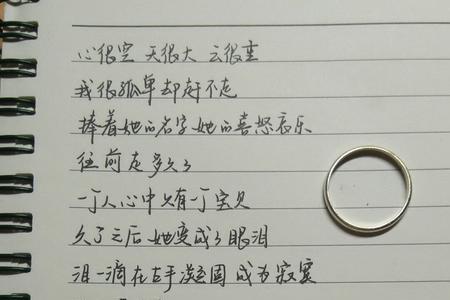 心很空 天很大 云很重
我很孤单却赶不走
捧着她的名字她的喜怒哀乐
往前走多久了
一个人心中只有一个宝贝
久了之后她变成了眼泪
泪一滴在左手凝固成为寂寞